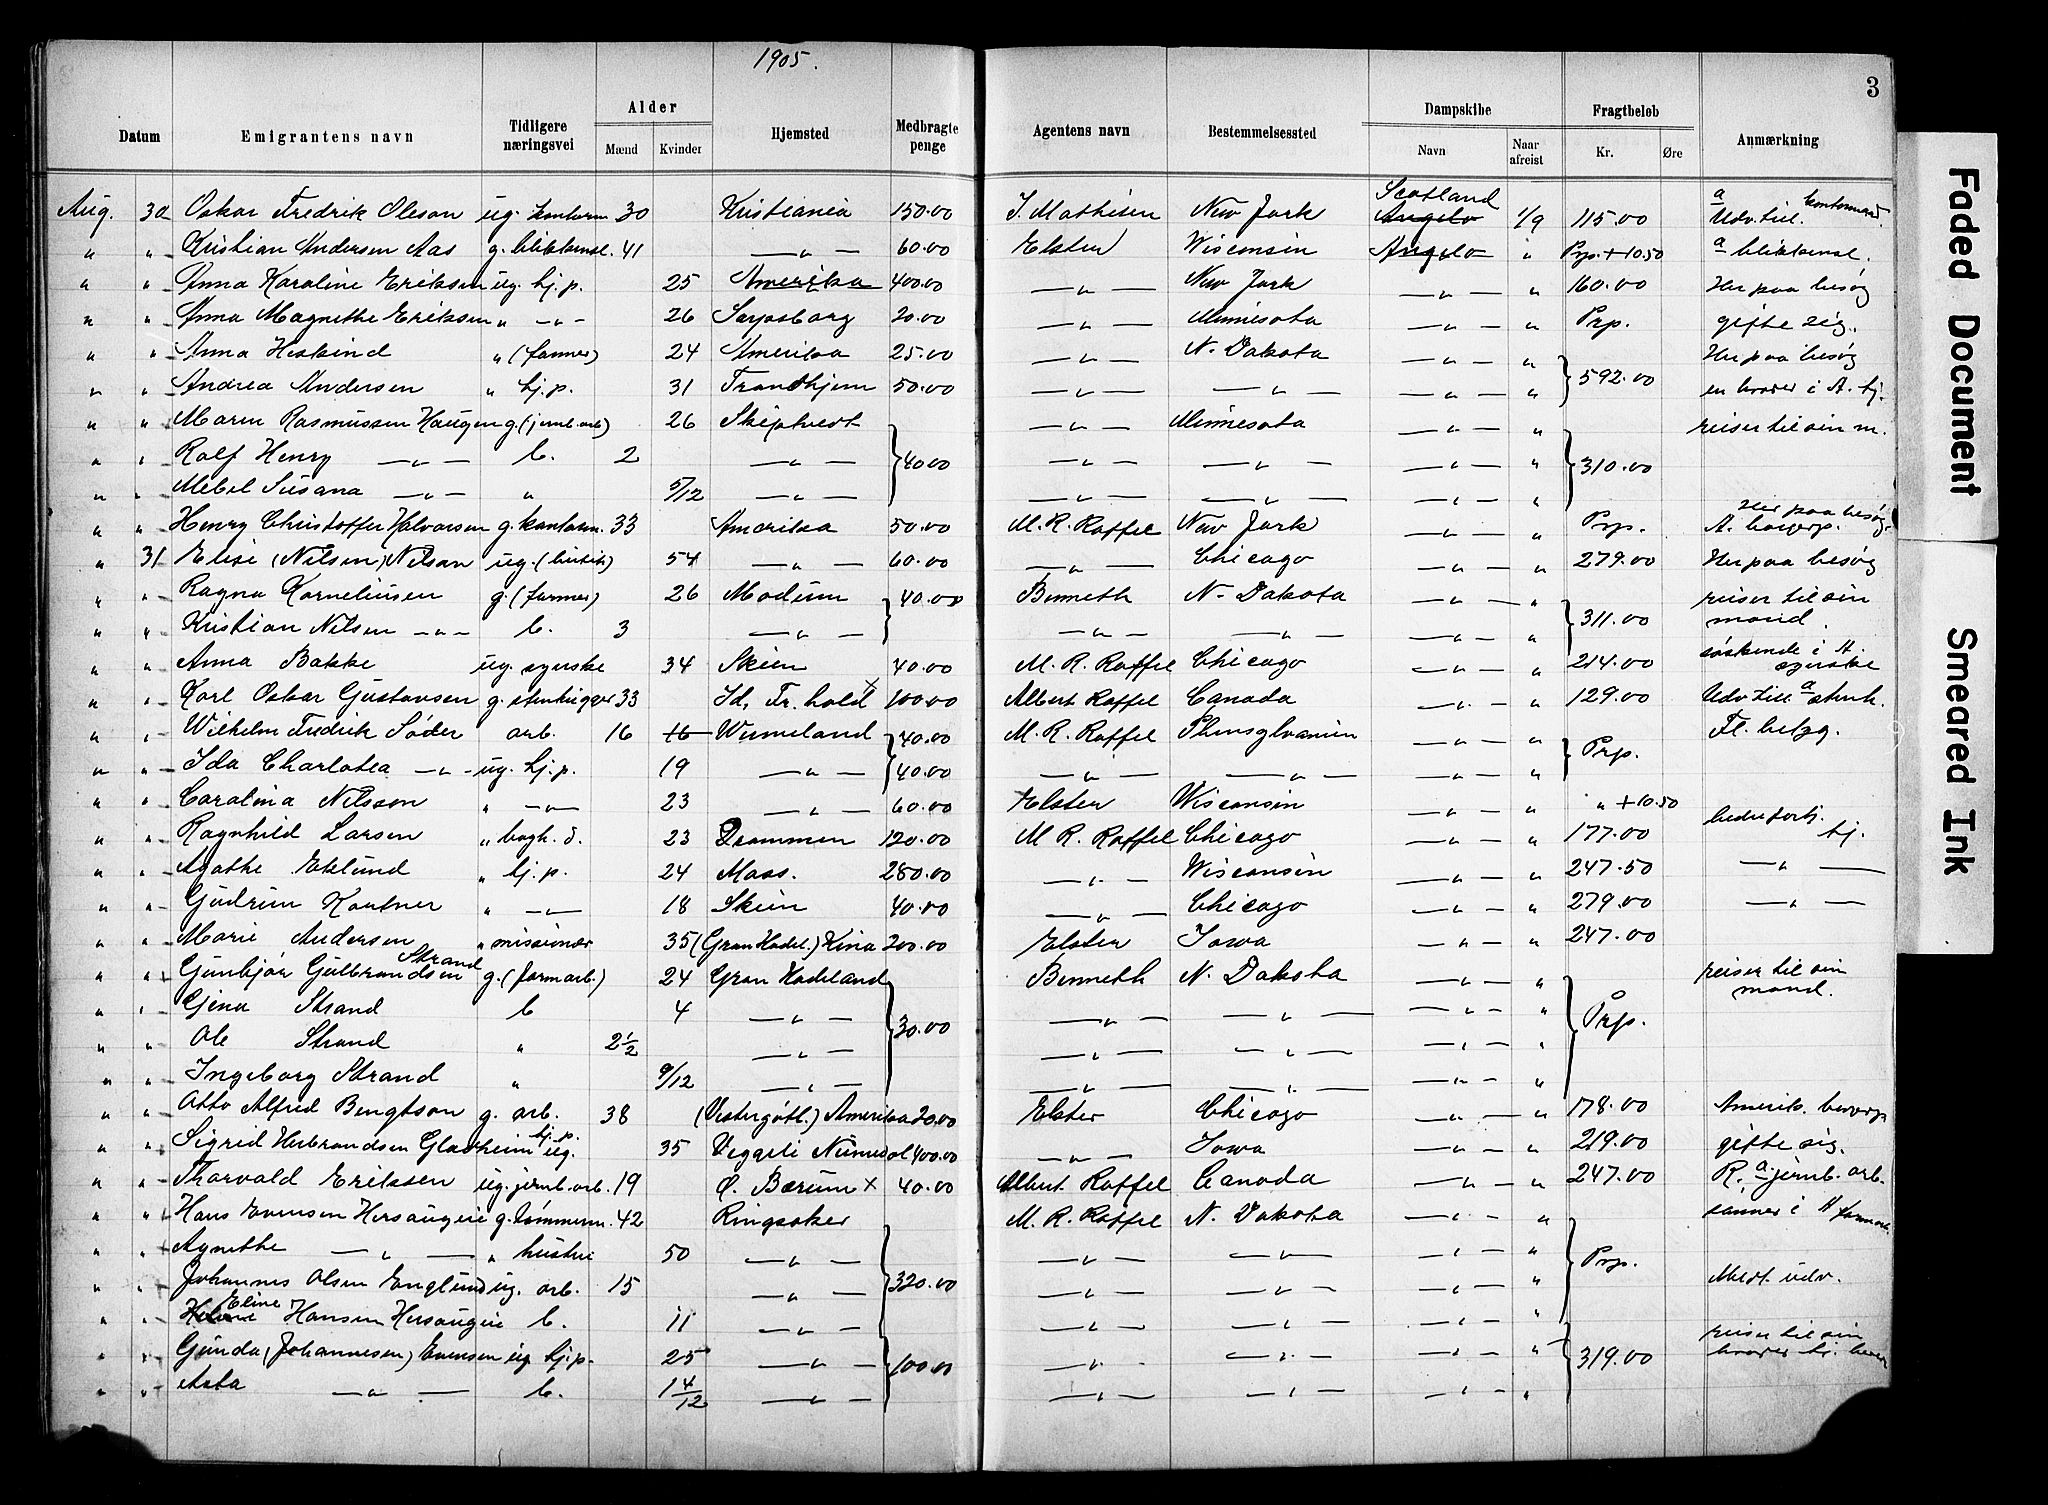 1905.
3
Datum Emigrantens navn Tidligere næringsvei Alder Mænd Kvinder Hjemsted Medbragte penge Agentens navn Bestemmelsessted Dampskibe Navn Naar afreist Fragtbeløb Kr. Øre Anmærkning
Aug. 30 Oskar Fredrik Oleson ug. kontorm. 30 Kristiania 150.00 J. Mathisen New Jork Scotland Angelo 1/9 115.00 Udv. till. a kontormd.
" " Kristian Andersen Aas g. blikkensl. 41 — " — 60.00 Elster Wisconsin Angelo " Prp. + 10.50 a blikkensl.
" " Anna Karoline Eriksen ug. tj.p. 25 Amerika 400.00 — " — New Jork — " — " 160.00 Her paa besøg
" " Anna Magnethe Eriksen " — " — 26 Sarpsborg 20.00 — " — Minnesota — " — " Prp. gifte sig.
" " Anna Heskind " (farmer) 24 Amerika 25.00 — " — N. Dakota — " — " 592.00 Her paa besøg
" " Andrea Andersen " tj.p. 31 Trondhjem 50.00 — " — — " — — " — " en broder i A. tj.
" " Maren Rasmussen Haugen g. (jernb. arb) 26 Skiptvedt 40.00 — " — Minnesota — " — " 310.00 reiser til sin m.
" " Rolf Henry — " — b. 2 — " — — " — — " — — " — "
" " Mebel Susana — " — " 5/12 — " — — " — — " — — " — "
" " Henry Christoffer Halvorsen g. kontorm. 33 Amerika 50.00 M. R. Raffel New Jork — " — " Prp. Her paa besøg. A. borgerp.
" 31 Elise (Nilsen) Nelson ug. (butik) 54 — " — 60.00 — " — Chicago — " — " 279.00 Her paa besøg
" " Ragna Korneliussen g. (farmer) 26 Modum 40.00 Benneth N. Dakota — " — " 311.00 reiser til sin mand.
" " Kristian Nilsen — " — b. 3 — " — — " — — " — — " — "
" " Anna Bakke ug. syerske 34 Skien 40.00 M. R. Raffel Chicago — " — " 214.00 søskende i A. syerske
" " Karl Oskar Gustavsen g. stenhugger 33 Id, Fr. hald x 100.00 Albert Raffel Canada — " — " 129.00 Udv. till. a stenh.
" " Wilhelm Fredrik Søder arb. 16 16 Wermeland 40.00 M. R. Raffel Phensylvanien — " — " Prp. Fl. betyg.
" " Ida Charlotta — " — ug. tj.p. 19 — " — 40.00 — " — — " — — " — "
" " Carolina Nilsson " — " — 23 — " — 60.00 Elster Wisconsin — " — " " + 10.50
" " Ragnhild Larsen " bagh. d. 23 Drammen 120.00 M. R. Raffel Chicago — " — " 177.00 bedre fortj. tj.
" " Agathe Eklund " tj.p. 24 Moss. 280.00 — " — Wisconsin — " — " 247.50 — " —
" " Gudrun Kantner " — " — 18 Skien 40.00 — " — Chicago — " — " 279.00 — " —
" " Marie Andersen " missionær 35 (Gran Hadel.) Kina 200.00 Elster Iowa — " — " 247.00
" " Gunbjør Gulbrandsen Strand g. (farmarb.) 24 Gran Hadeland 30.00 Benneth N. Dakota — " — " Prp. reiser til sin mand.
" " Gina Strand b 4 — " — — " — — " — — " — "
" " Ole Strand " 2 1/2 — " — — " — — " — — " — "
" " Ingeborg Strand " 9/12 — " — — " — — " — — " — "
" " Otto Alfred Bengtson g. arb. 38 (Vestergøtl.) Amerika 20.00 Elster Chicago — " — " 178.00 Amerik. borgerp
" " Sigrid Herbrandsen Gladheim tj.p. ug. 35 Veggeli Numedal 400.00 — " — Iowa — " — " 219.00 gifte sig.
" " Thorvald Eriksen ug. jernb. arb. 19 Ø. Bærum x 40.00 Albert Raffel Canada — " — " 247.00 R. a jernb. arb.
" " Hans Evensen Hersaugeie g. tømmerm. 42 Ringsaker 320.00 M. R. Raffel N. Dakota — " — " Prp. sønner i A farmarb.
" " Agnethe — " — " hustru 50 — " — — " — — " — — " — "
" " Johannes Olsen Englund ug. arb. 15 — " — — " — — " — — " — " Medt. udv.
" " Eline Hansen Hersaugeie b. 11 — " — — " — — " — — " — "
" " Gunda (Johannesen) Evensen ug tj.p. 25 — " — 100.00 — " — — " — — " — " 319.00 reiser til sin broder tj.
" " Asta — " — b. 1 4/12 — " — — " — — " — — " — "
Faded Document Smeared Ink